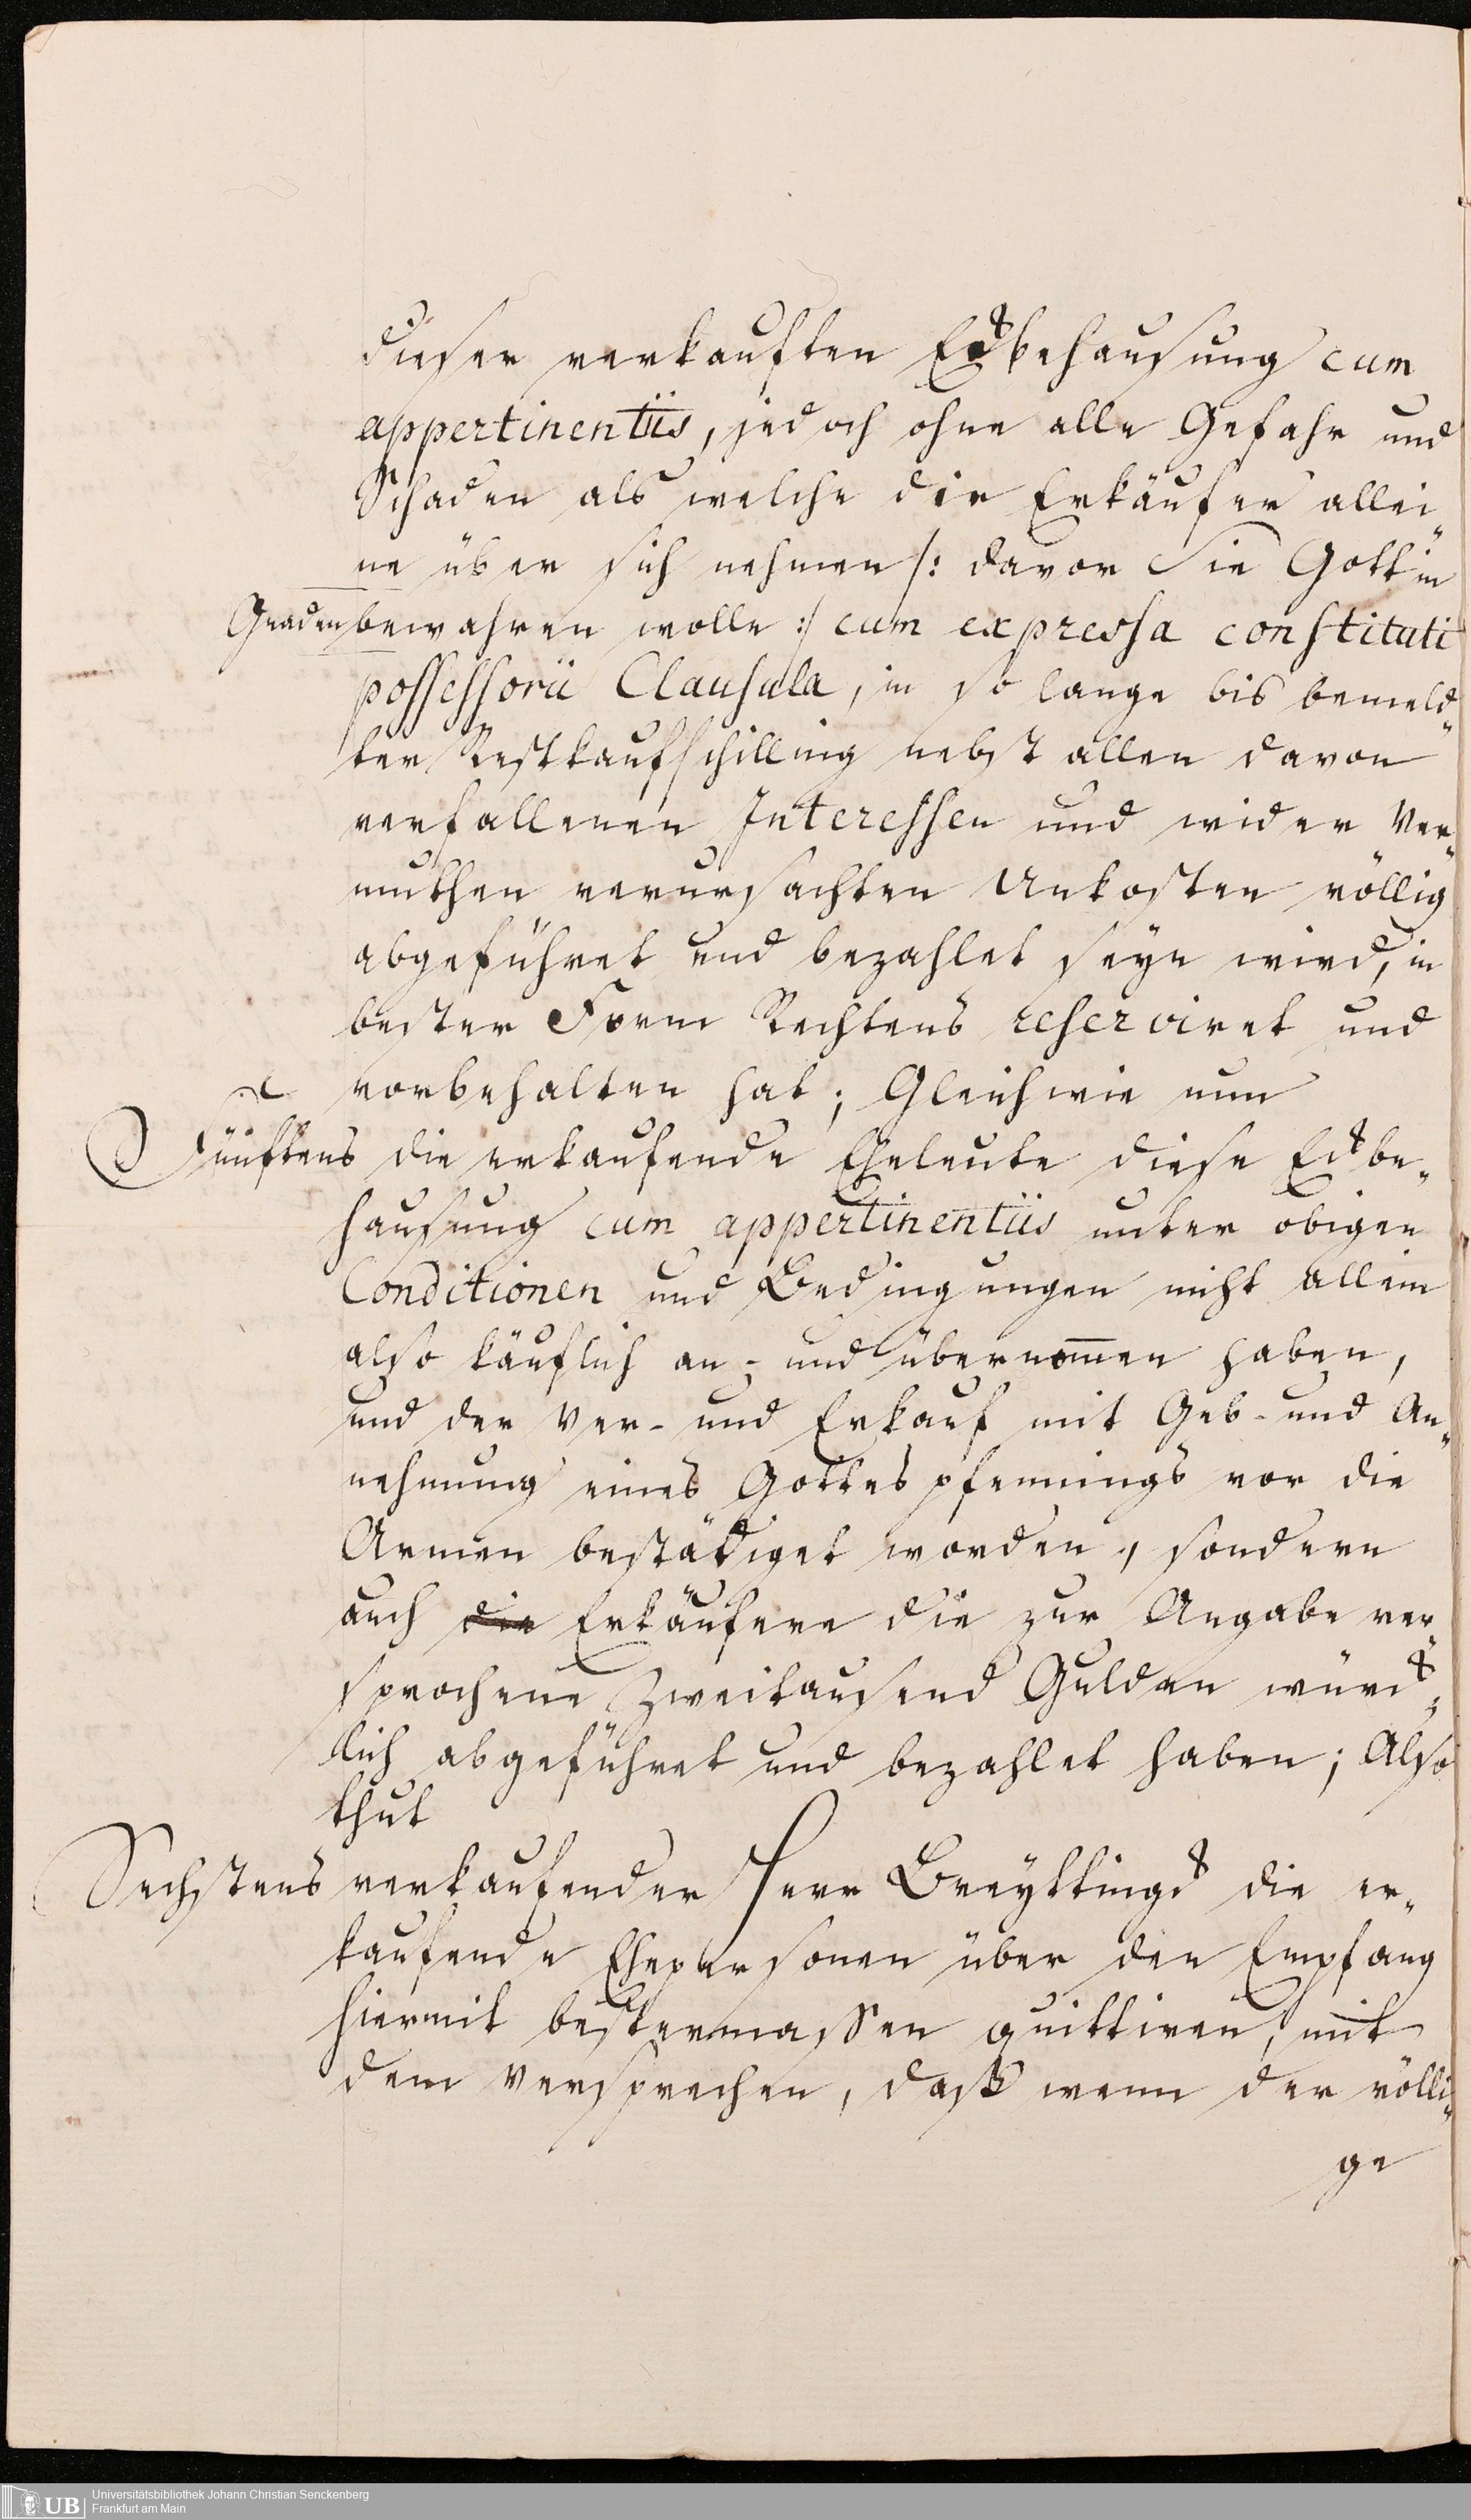 dieser verkauften Eckbehausung cum
appertinentiis, jedoch ohne alle Gefahr und
Schaden als welche die Erkäufer allei„
ne über sich nehmen /: davor Sie Gott in
Gnaden bewahren wolle :/ cum expressa constituti
possessorii Clausula, in so lange bis bemeld„
ter Restkaufschilling nebst allen davon
verfallenen Interessen und wider Ver„
muthen verursachten Unkosten völlig
abgeführet und bezahlet seyn wird, in
bester Form Rechtens reserviret und
vorbehalten hat; Gleichwie nun
Fünftens die erkaufende Eheleute diese Eckbe„
hausung cum appertinentiis unter obigen
Conditionen und Bedingungen nicht allein
also käuflich an- und übernom̄en haben,
und der Ver- und Erkauf mit Geb- und An„
nehmung eines Gottespfennings vor die
Armen bestätiget worden, sondern
auch die Erkäufere die zur Angabe ver„
sprochene Zweitausend Gulden würck„
lich abgeführet und bezahlet haben; Also
thut
Sechstens verkaufender Herr Breyttingck die er„
kaufende Ehepersonen über den Empfang
hiermit bestermassen quittiren, mit
dem Versprechen, dasß wenn der völli„
ge
Universitätsbibliothek Johann Christian Senckenberg
UB Frankfurt am Main